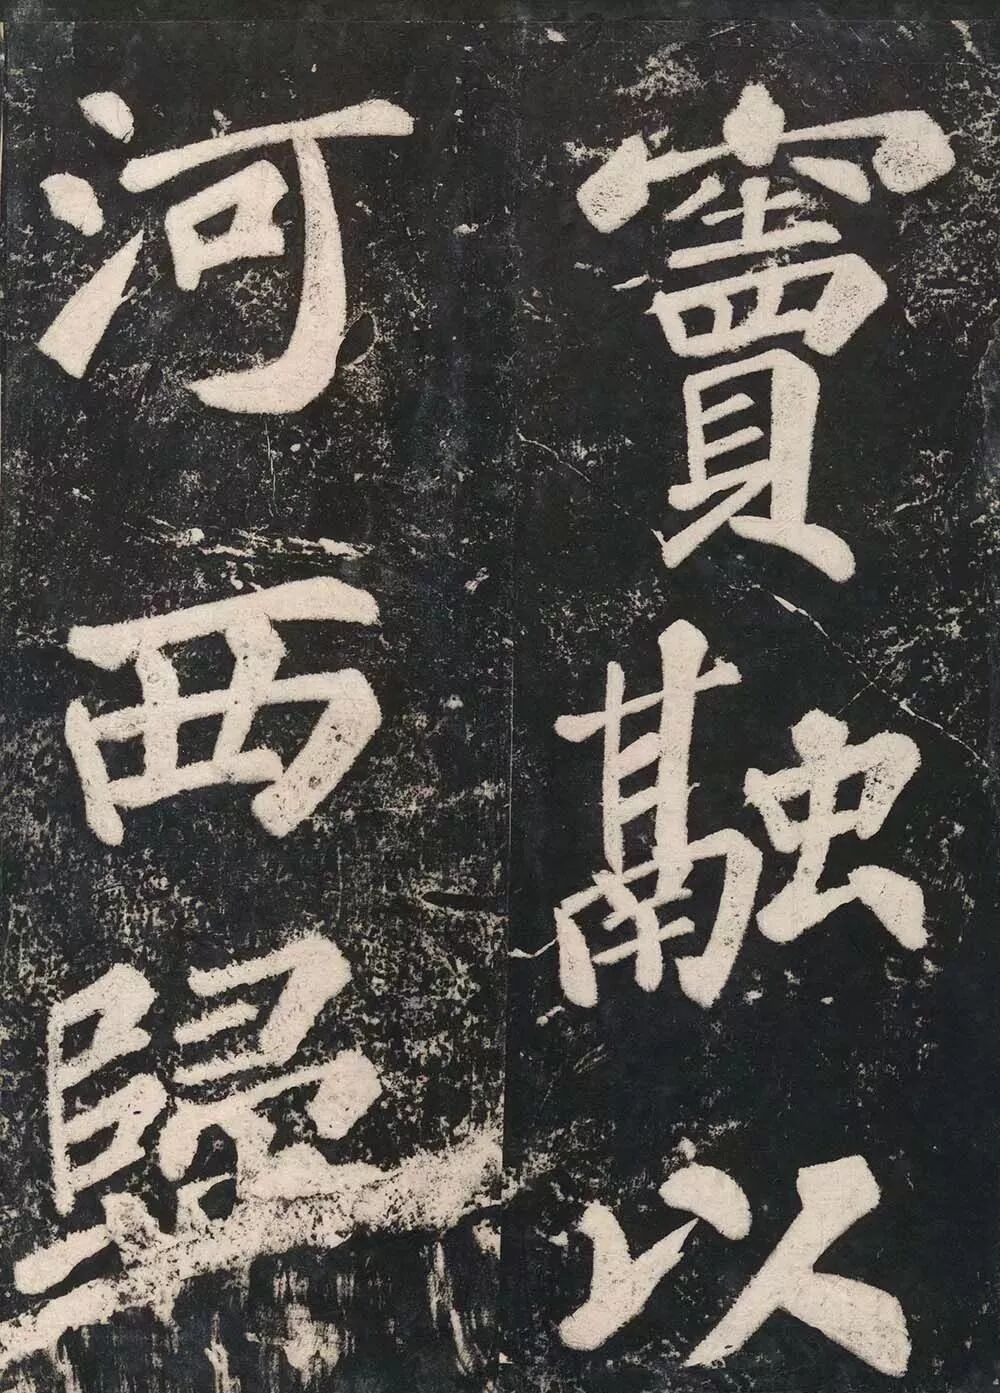 竇融以
河西歸